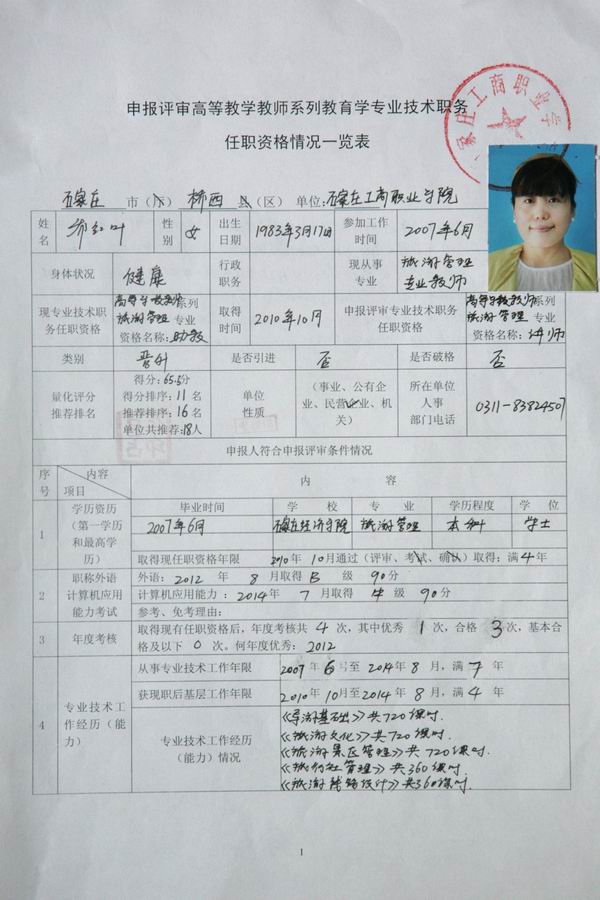 申报评审高等教学教师系列教育学专业技术职务
任职资格情况一览表
家庄工商职业学
石家庄 市(乡) 桥西 县(区) 单位:石家庄工商职业学院
姓名 红叶 性别 女 出生日期 1983年3月17日 参加工作时间 2007年6月
身体状况 健康 行政职务 现从事专业 旅游管理专业教师
现专业技术职务任职资格 高等学校教师系列 旅游管理专业 资格名称:助教 取得时间 2010年10月 申报评审专业技术职务任职资格 高等学校教师系列 旅游管理专业 资格名称:讲师
类别 晋升 是否引进 否 是否破格 否
量化评分推荐排名 得分:65.5分 得分排序:11名 推荐排序:16名 单位共推荐:18人 单位性质 (事业、公有企业、民营企业、机关) 所在单位人事部门电话 0311-83824507
申报人符合申报评审条件情况
序号 内容 项目 内 容
1 学历资历(第一学历和最高学历) 毕业时间 学 校 专 业 学历程度 学 位
2007年6月 石家庄经济学院 旅游管理 本科 学士
取得现任职资格年限 2010年10月通过(评审、考试、确认)取得;满4年
2 职称外语计算机应用能力考试 外语:2012 年 8月取得 B 级 90分
计算机应用能力:2014年 7月取得 中级 90分
参考、免考理由:
3 年度考核 取得现有任职资格后,年度考核共 4 次,其中优秀 1次,合格 3次,基本合格及以下 0 次。何年度优秀:2012
4 专业技术工作经历(能力) 从事专业技术工作年限 2007年6号至2014年8月,满 7 年
获现职后基层工作年限 2010年10月至2014年8月,满 4 年
专业技术工作经历(能力)情况 《导游基础》共720课时.
《旅游文化》共720课时.
《旅游景区管理》共720课时.
《旅行社管理》共360课时.
《旅游线路设计》共360课时.
1